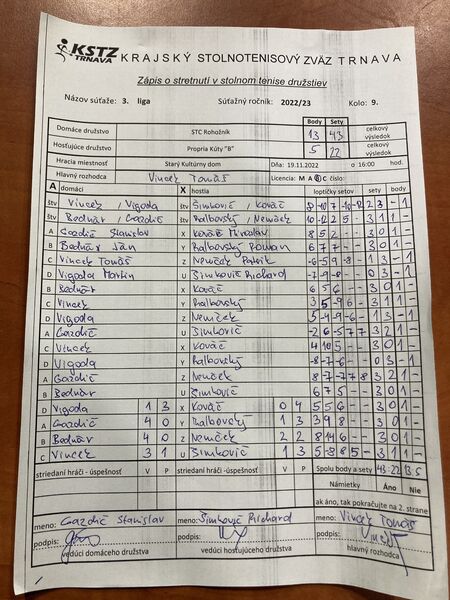 KSTZ TRNAVA KRAJSKÝ STOLNOTENISOVÝ ZVÄZ TRNAVA
Zápis o stretnutí v stolnom tenise družstiev
Názov súťaže: 3. liga Súťažný ročník: 2022/23 Kolo: 9.
Body Sety
Domáce družstvo STC Rohožník 13 43 celkový výsledok
Hosťujúce družstvo Propria Kúty "B" 5 22 celkový výsledok
Hracia miestnosť Starý Kultúrny dom Dňa: 19.11.2022 o 16:00 hod.
Hlavný rozhodca Vincek Tomáš Licencia: M A B C číslo:
A domáci X hostia loptičky setov sety body
štv Vincek / Vigoda štv Šimkovič / Kováč 2 3 - 1
štv Bednár / Gazdič štv Ralbovský / Nemček 10 -12 2 5 3 1 1 -
A Gazdič Stanislav X Kováč Miroslav 8 5 2 - - 3 0 1 -
B Bednár Ján Y Ralbovský Roman 6 7 7 - - 3 0 1 -
C Vincek Tomáš Z Nemček Patrik -6 -5 9 -8 - 1 3 - 1
D Vigoda Martin U Šimkovič Richard -7 -9 -8 - - 0 3 - 1
B Bednár X Kováč 3 0 1 -
C Vincek Y Ralbovský 3 5 -9 6 - 3 1 1 -
D Vigoda Z Nemček 5 -4 -9 -6 - 1 3 - 1
A Gazdič U Šimkovič -2 6 -5 7 7 3 2 1 -
C Vincek X Kováč 4 10 5 - - 3 0 1 -
D Vigoda Y Ralbovský -8 -7 -6 - - 0 3 - 1
A Gazdič Z Nemček 8 -7 -7 7 8 3 2 1 -
B Bednár U Šimkovič 6 7 5 - - 3 0 1 -
D Vigoda 1 3 X Kováč 0 4 5 5 6 - - 3 0 1 -
A Gazdič 4 0 Y Ralbovský 1 3 3 9 8 - - 3 0 1 -
B Bednár 4 0 Z Nemček 2 2 8 14 6 - - 3 0 1 -
C Vincek 3 1 U Šimkovič 1 3 5 -8 8 5 - 3 1 1 -
striedaní hráči - úspešnosť V P striedaní hráči - úspešnosť V P Spolu body a sety 43:22 13:5
Námietky Áno Nie
ak áno, tak pokračujte na 2. strane
meno: Gazdič Stanislav meno: Šimkovič Richard meno: Vincek Tomáš
podpis: podpis: podpis:
vedúci domáceho družstva vedúci hosťujúceho družstva hlavný rozhodca